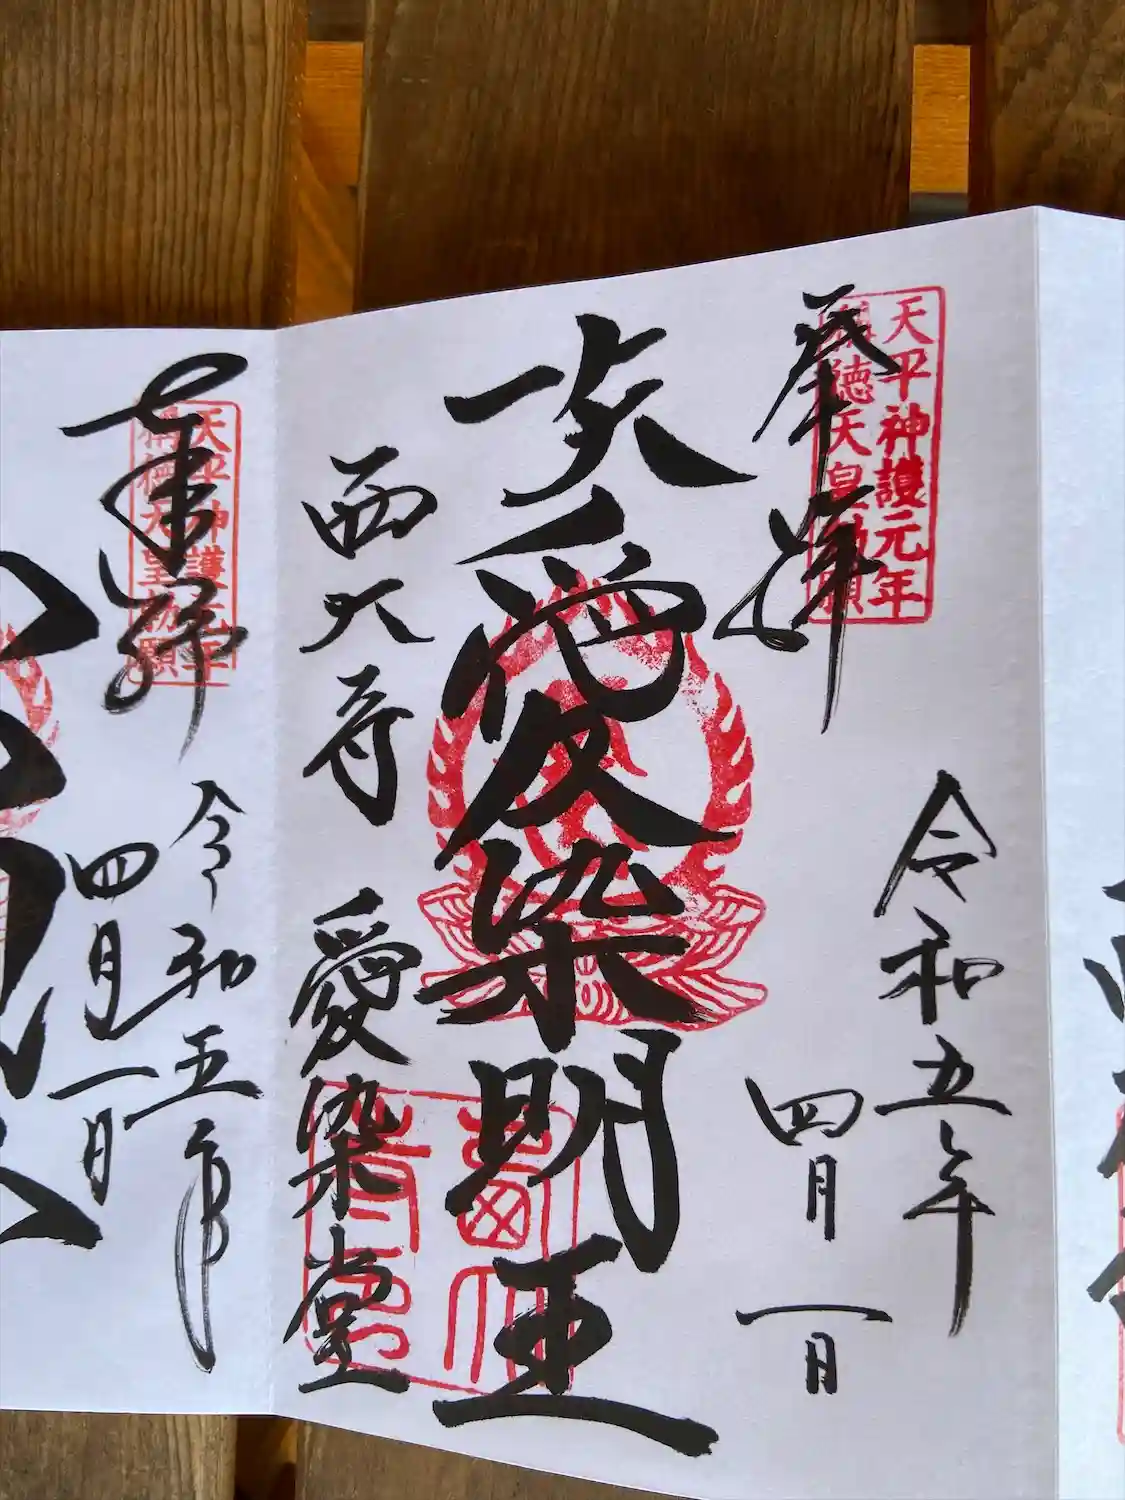 奉拝
天平神護元年
稱徳天皇勅願
令和五年
四月一日
大愛染明王
西大寺 愛染堂
奉拝
天平神護元年
稱徳天皇勅願
令和五年
四月一日